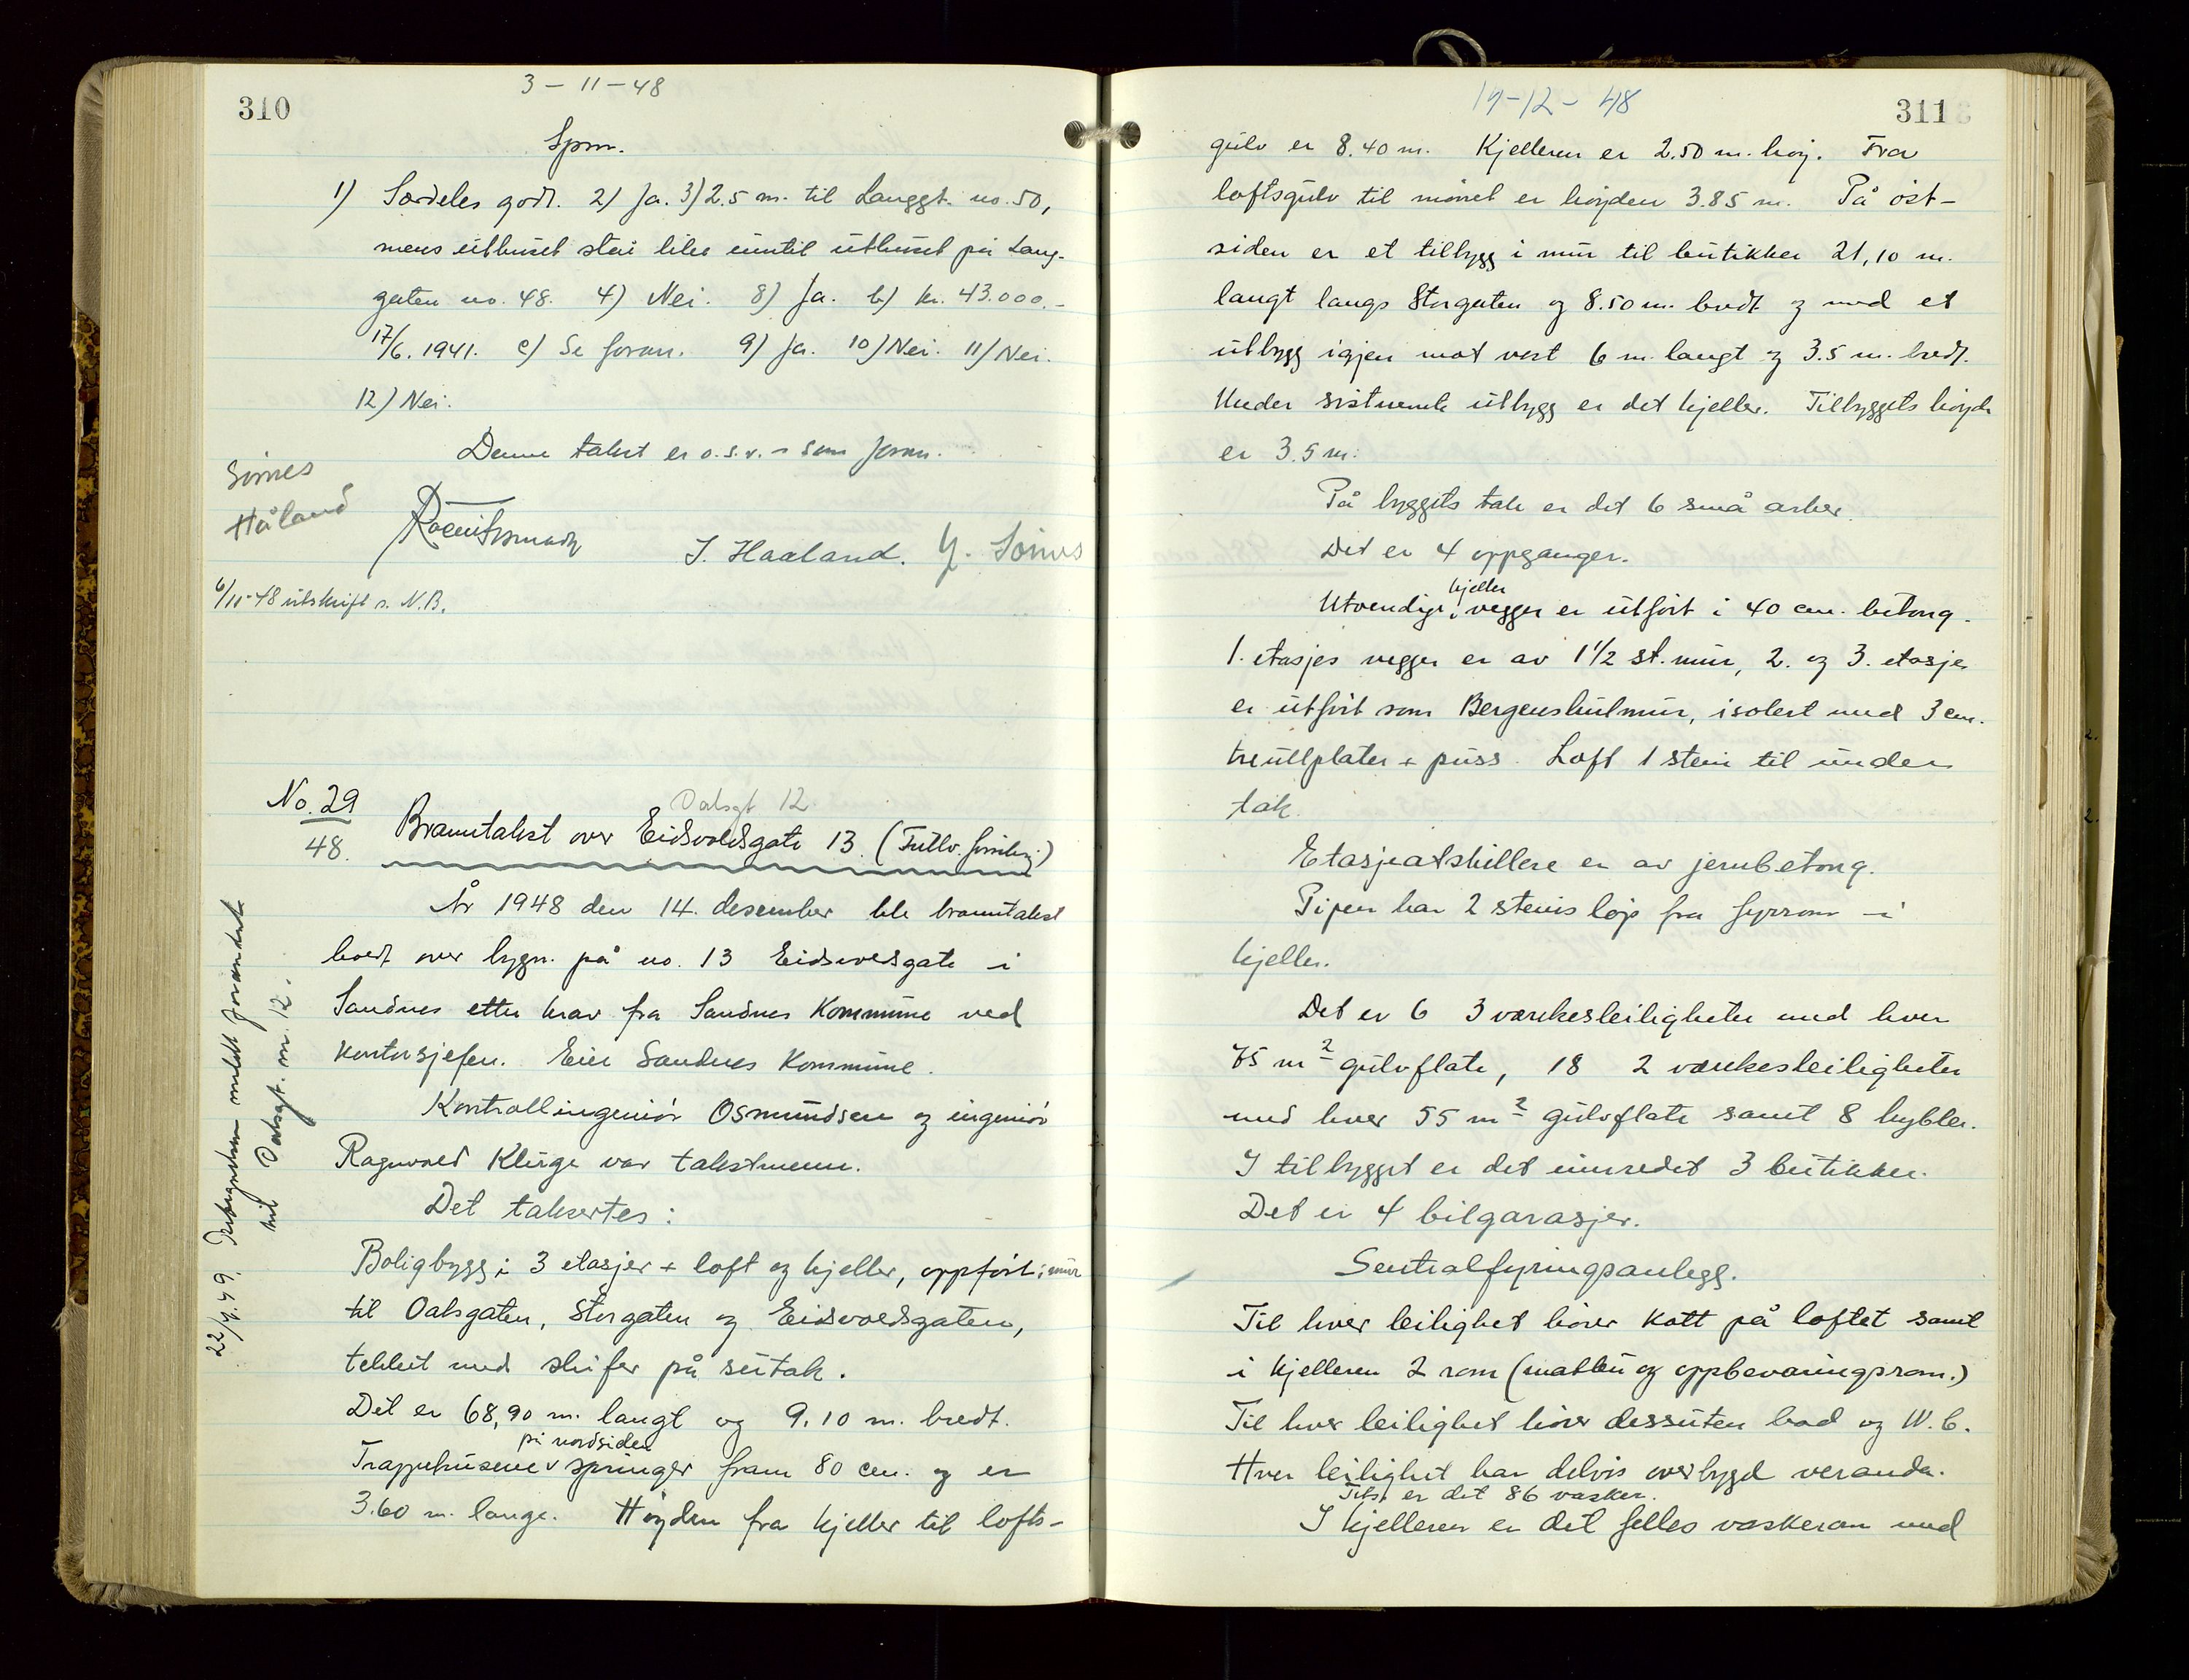 310
3 – 11 – 48
Spm.
1) Særdeles godt. 2) Ja. 3) 2.5 m. til Langgt. no. 50,
mens uthuset står like inntil uthuset på Lang-
gaten no. 48. 4) Nei. 8) Ja. b) kr. 43.000.-
17/6. 1941. c) Se foran. 9) Ja. 10) Nei. 11) Nei.
12) Nei.
Denne takst er o.s.v. – som foran.
Sömes
Håland
J. Haaland. Y. Sömes
6/11-48 utskrift s. N.B.
No. 29
48.
Dalsgt 12
Branntakst over Eidsvoldsgate 13. (Fullv. forsikr.)
År 1948 den 14. desember ble branntakst
holdt over bygn. på no. 13 Eidsvoldsgate i
Sandnes etter krav fra Sandnes Kommune ved
kontorsjefen. Eier Sandnes Kommune.
Kontrollingeniör Osmundsen og ingeniör
Ragnvald Kluge var takstmenn.
Det taksertes:
Boligbygg i 3 etasjer + loft og kjeller, oppfört i mur
til Dalsgaten, Storgaten og Eidsvoldsgaten,
tekket med skifer på sutak.
Det er 68,90 m. langt og 9.10 m. bredt.
på nordsiden
Trappehusene v springer fram 80 cm. og er
3.60 m. lange. Höyden fra kjeller til lofts-
22/4.49. meldt forandret
til Dalsgt. nr. 12.
311
14-12-48
gulv er 8.40 m. Kjelleren er 2.50 m. höy. Fra
loftsgulv til mönet er höyden 3.85 m. På öst-
siden er et tilbygg i mur til butikker 21,10 m.
langt langs Storgaten og 8.50 m. bredt og med et
utbygg igjen mot vest 6 m. langt og 3.5 m. bredt.
Under sistnevnte utbygg er det kjeller. Tilbyggets höyde
er 3.5 m.
På byggets tak er det 6 små arker.
Det er 4 oppganger.
kjeller
Utvendige vegger er utfört i 40 cm. betong.
1. etasjes vegger er av 1½ st. mur, 2. og 3. etasje
er utfört som Bergenshulmur, isolert med 3 cm.
treullplater + puss. Loft 1 stein til under
tak.
Etasjeatskillere er av jernbetong.
Pipen har 2 steins löp fra fyrrom i
kjeller.
Det er 6 3 værelsesleiligheter med hver
75 m2 gulvflate, 18 2 værelsesleiligheter
med hver 55 m2 gulvflate samt 8 hybler.
I tilbygget er det innredet 3 butikker.
Det er 4 bilgarasjer.
Sentralfyringsanlegg.
Til hver leilighet hörer kott på loftet samt
i kjelleren 2 rom (matbu og oppbevaringsrom.)
Til hver leilighet hörer dessuten bad og W.C.
Hver leilighet har delvis overbygd veranda.
Tils. er det 86 vasker.
I kjelleren er det felles vaskerom med